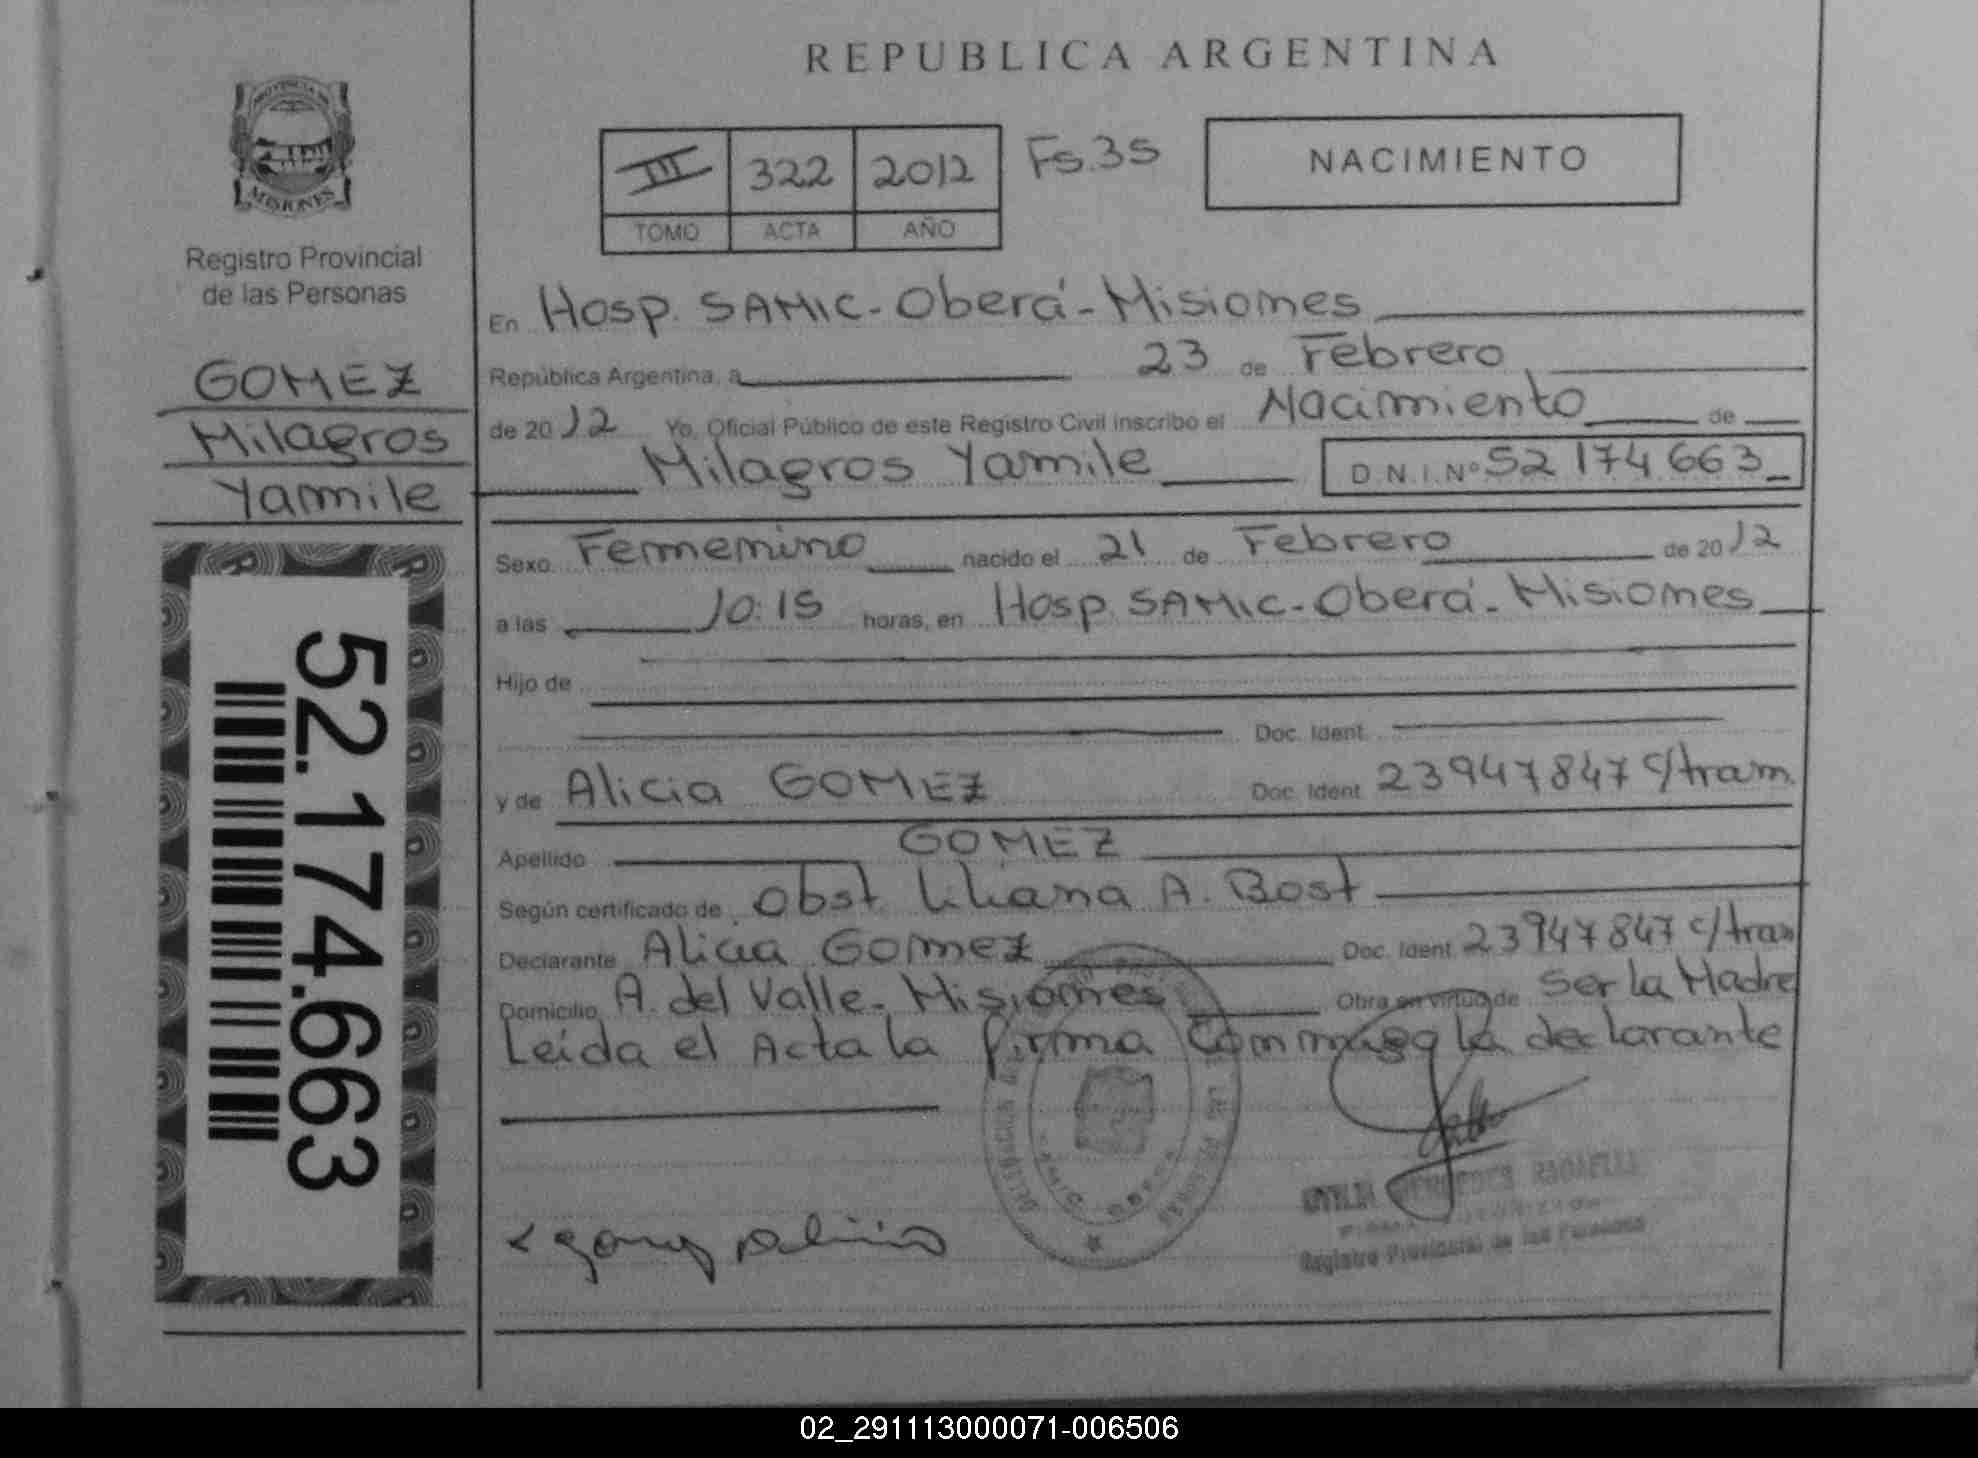 REPUBLICA ARGENTINA
PROVINCIA DE
MISIONES
Registro Provincial
de las Personas
GOMEZ
Milagros
Yamile
52.174.663
III 322 2012 Fs.35
TOMO ACTA AÑO
NACIMIENTO
En Hosp. SAMIC-Oberá-Misiones
República Argentina, a 23 de Febrero
de 2012 Yo, Oficial Público de este Registro Civil inscribo el Nacimiento de
Milagros Yamile D.N.I.Nº 52 174 663
Sexo Femenino nacido el 21 de Febrero de 2012
a las 10:15 horas, en Hosp. SAMIC-Oberá-Misiones
Hijo de
Doc. Ident.
y de Alicia GOMEZ Doc. Ident. 23947847 c/tram.
Apellido GOMEZ
Según certificado de Obst. Liliana A. Bost
Declarante Alicia Gomez Doc. Ident. 23947847 c/tram
Domicilio A. del Valle-Misiones Obra en virtud de Ser la Madre
Leida el Acta la firma Conmigo la declarante
Registro Provincial de las Personas
02_291113000071-006506